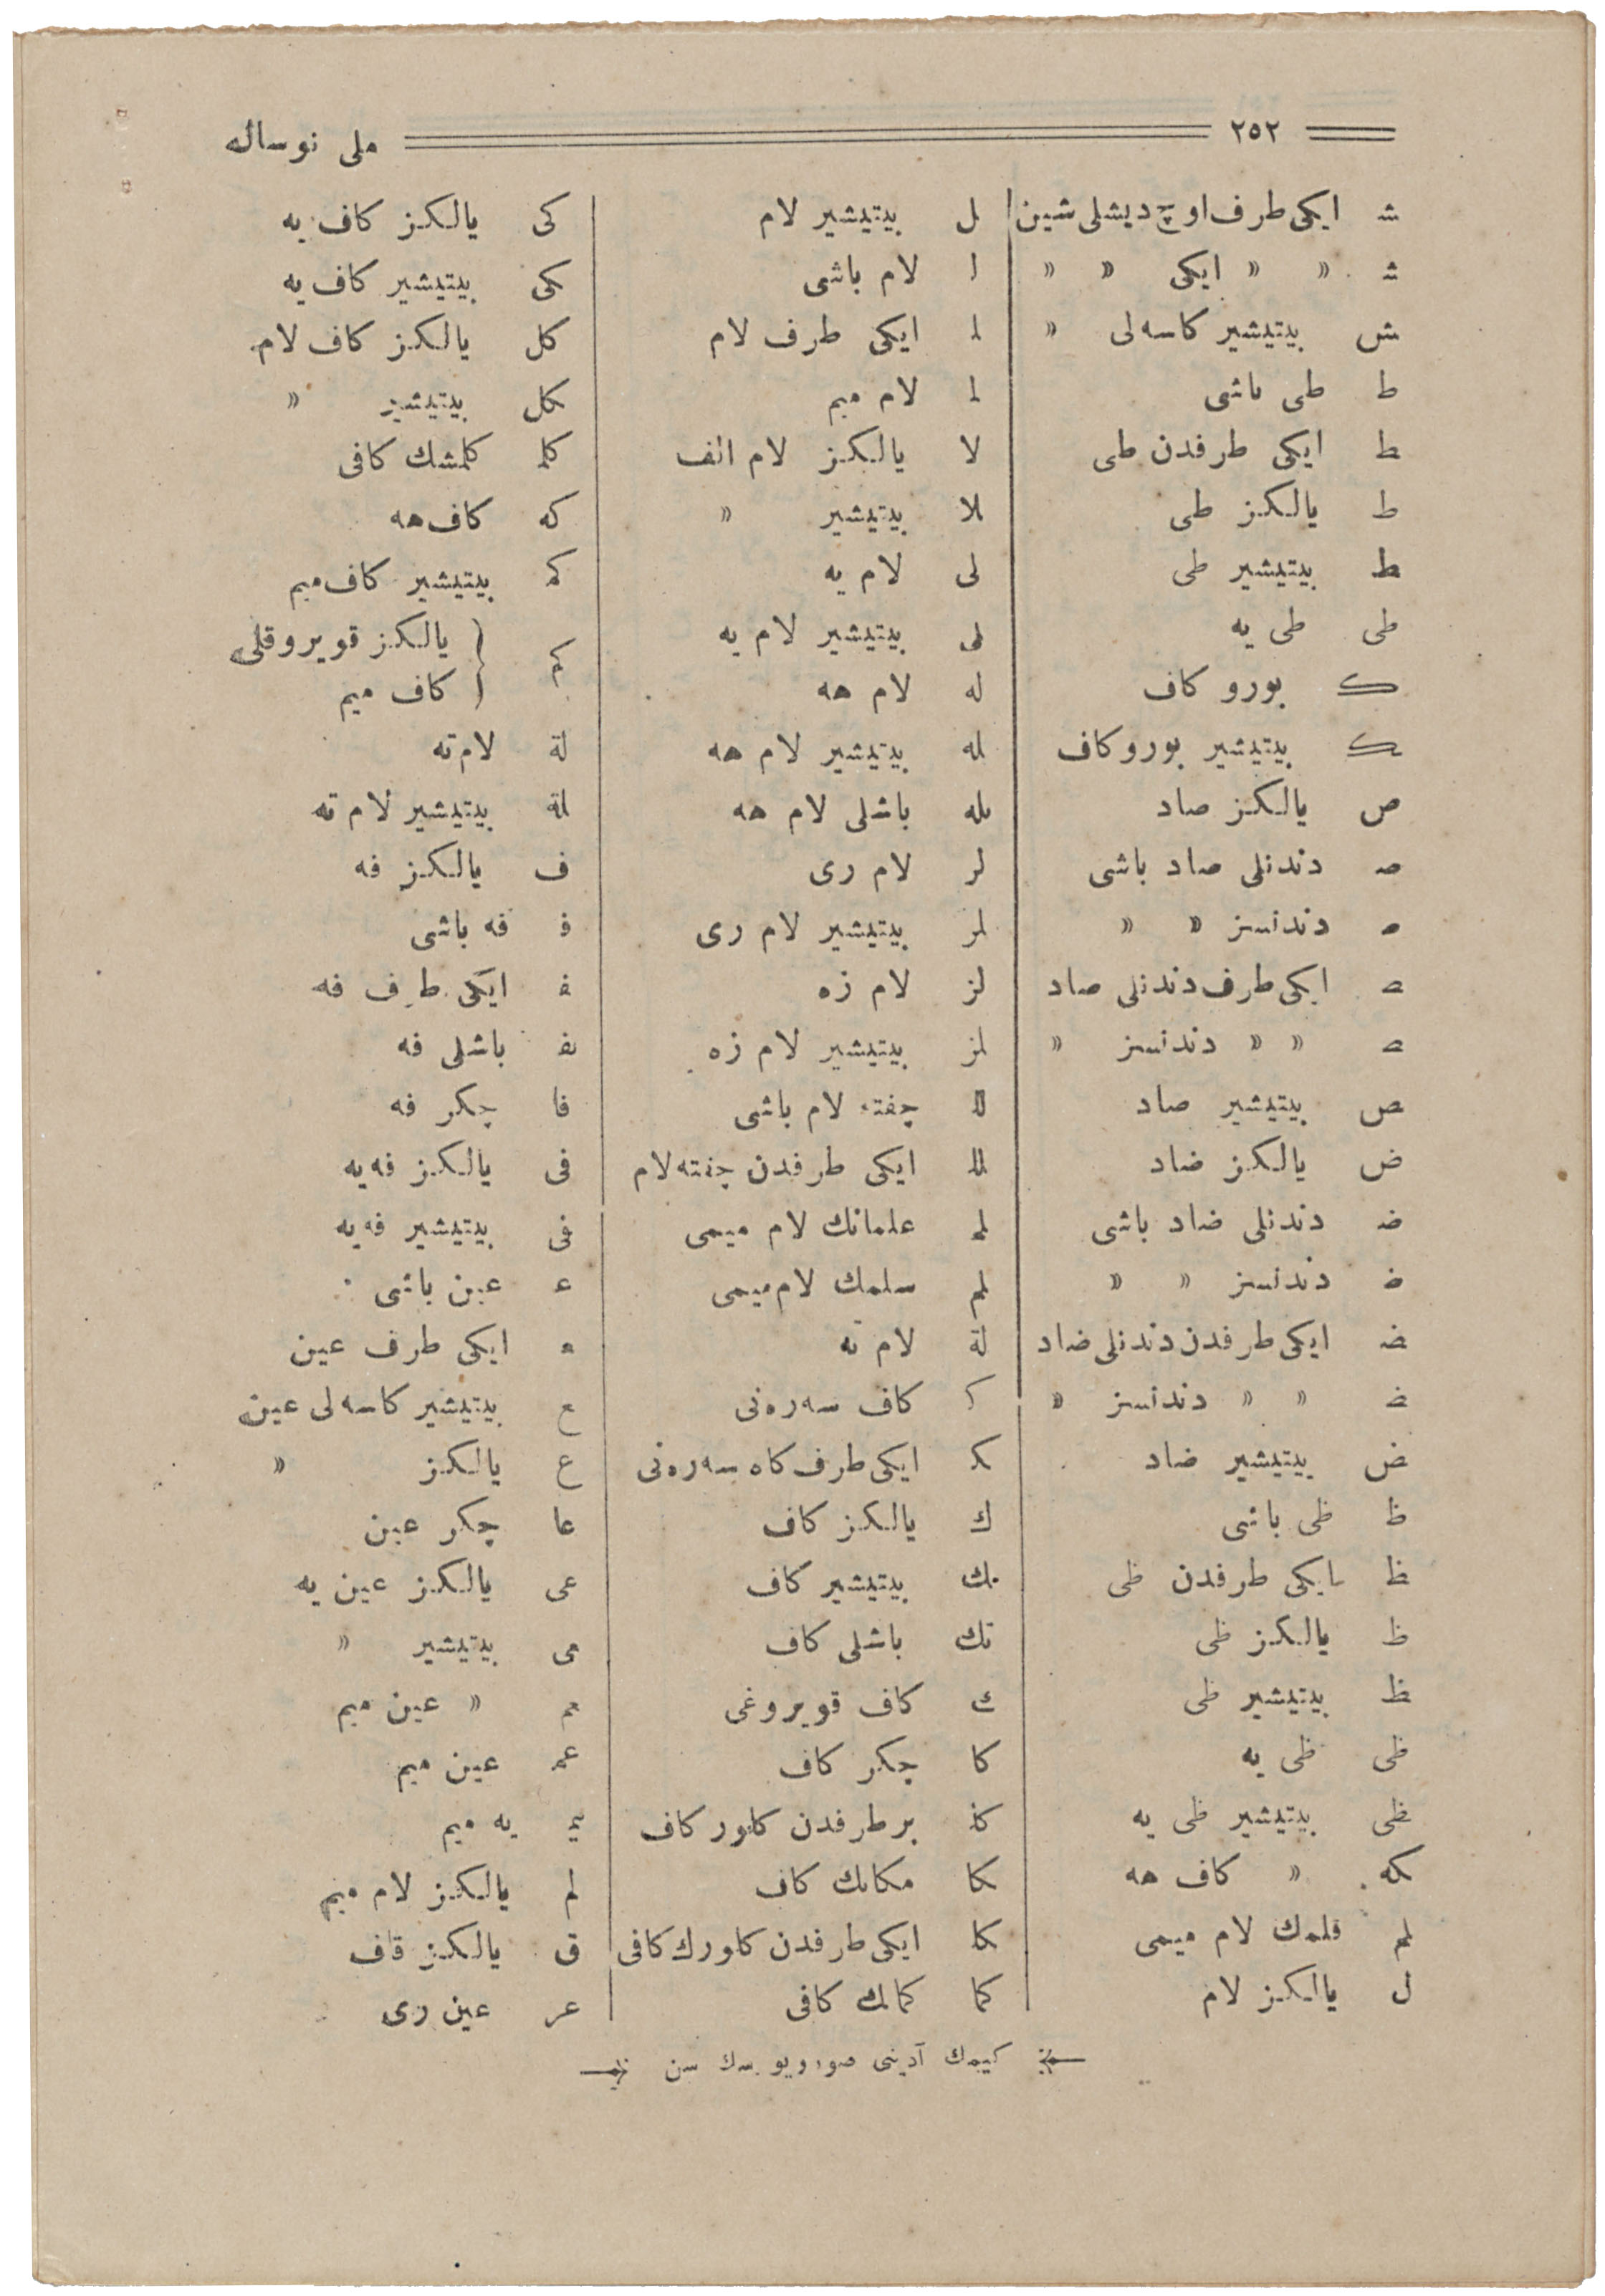 ٢٥٢
ملی نوسال
ﺷ ایکی طرف اوچ دیشلی شین
ﺷ » » ایکی » »
ش بیتیشیر کاسه‌لی »
ط طی باشی
ط ایکی طرفدن طی
ط یالکز طی
ط بیتیشیر طی
طی طی یه
ك بورو کاف
ك بیتیشیر بورو کاف
ص یالکز صاد
صـ دندنلی صاد باشی
صـ دندنسز » »
ـصـ ایکی طرف دندنلی صاد
ـصـ » » دندنسز »
ـص بیتیشیر صاد
ض یالکز ضاد
ضـ دندنلی ضاد باشی
ضـ دندنسز » »
ـضـ ایکی طرفدن دندنلی ضاد
ـضـ » » دندنسز »
ـض بیتیشیر ضاد
ظ ظی باشی
ظ ایکی طرفدن ظی
ظ یالکز ظی
ظ بیتیشیر ظی
ظی ظی یه
ـظی بیتیشیر ظی یه
ـکه » کاف هه
ـلم قلمك لام میمی
ل یالکز لام
ـل بیتیشیر لام
لـ لام باشی
ـلـ ایکی طرف لام
لـ لام میم
لا یالکز لام الف
ـلا بیتیشیر »
لی لام یه
ـلی بیتیشیر لام یه
له لام هه
ـله بیتیشیر لام هه
ـله باشلی لام هه
لر لام ری
ـلر بیتیشیر لام ری
لز لام زه
ـلز بیتیشیر لام زه
للـ چفته لام باشی
ـللـ ایکی طرفدن چفته لام
ـلمـ علمانك لام میمی
ـلم سلمك لام میمی
لة لام ته
کـ کاف سه‌ره‌نی
ـکـ ایکی طرف کاه سه‌ره‌نی
ك یالکز کاف
ـك بیتیشیر کاف
تك باشلی کاف
ك کاف قویروغی
کا چکر کاف
کا بر طرفدن کاور کاف
ـکا مکانك کاف
ـکا ایکی طرفدن کاورك کافی
کما کمالك کافی
کی یالکز کاف یه
ـکی بیتیشیر کاف یه
کل یالکز کاف لام
ـکل بیتیشیر »
کلمـ کلمشك کافی
که کاف هه
ـکمـ بیتیشیر کاف میم
کم ( یالکز قویروقلی
( کاف میم
لة لام ته
ـلة بیتیشیر لام ته
ف یالکز فه
فـ فه باشی
ـفـ ایکی طرف فه
ـفـ باشلی فه
فا چکر فه
فی یالکز فه یه
ـفی بیتیشیر فه یه
عـ عین باشی
ـعـ ایکی طرف عین
ـع بیتیشیر کاسه‌لی عین
ع یالکز »
عا چکر عین
عی یالکز عین یه
ـعی بیتیشیر »
ـعمـ » عین میم
عمـ عین میم
یمـ یه میم
لم یالکز لام میم
ق یالکز قاف
عر عین ری
کیمك آدینی صورویورسك سن